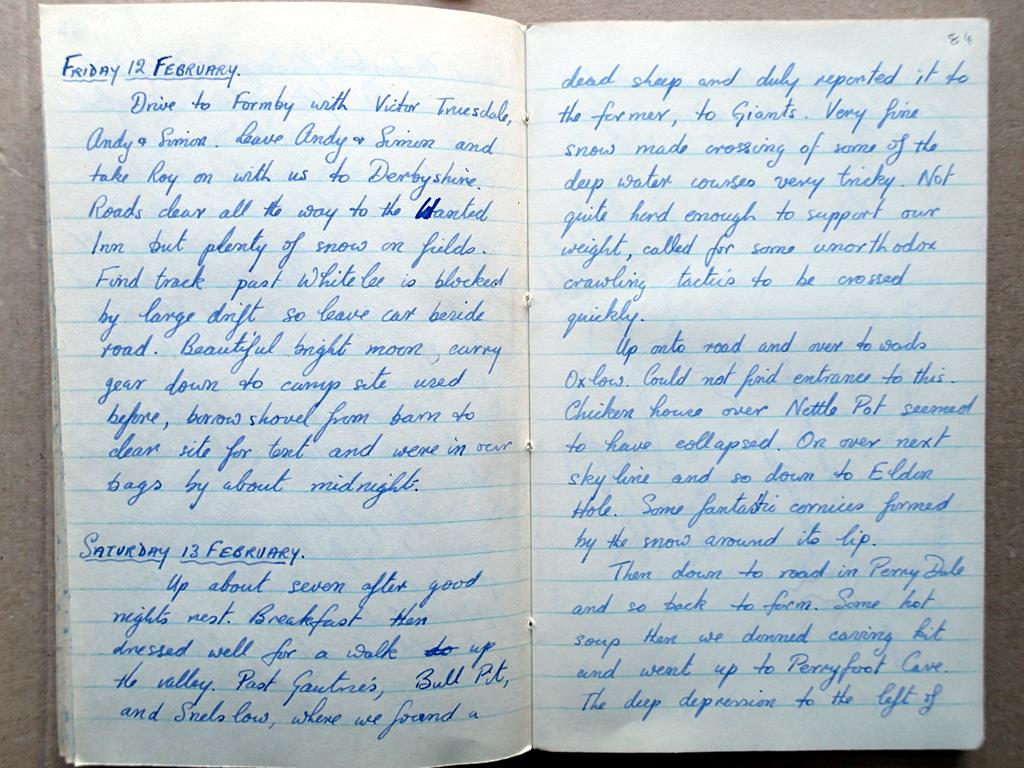 FRIDAY 12 FEBRUARY.
Drive to Formby with Victor Truesdale,
Andy & Simon. Leave Andy & Simon and
take Roy on with us to Derbyshire.
Roads clear all the way to the Wanted
Inn but plenty of snow on fields.
Find track past Whitelee is blocked
by large drift so leave car beside
road. Beautiful bright moon, carry
gear down to camp site used
before, borrow shovel from barn to
clear site for tent and were in our
bags by about midnight.
SATURDAY 13 FEBRUARY.
Up about seven after good
nights rest. Breakfast then
dressed well for a walk to up
the valley. Past Gautries, Bull Pit,
and Snels low, where we found a
84
dead sheep and duly reported it to
the farmer, to Giants. Very fine
snow made crossing of some of the
deep water courses very tricky. Not
quite hard enough to support our
weight, called for some unorthodox
crawling tactics to be crossed
quickly.
Up onto road and over towads
Oxlow. Could not find entrance to this.
Chicken house over Nettle Pot seemed
to have collapsed. On over next
sky line and so down to Eldon
Hole. Some fantastic cornices formed
by the snow around its lip.
Then down to road in Perry Dale
and so back to farm. Some hot
soup then we donned caving kit
and went up to Perryfoot Cave.
The deep depression to the left of